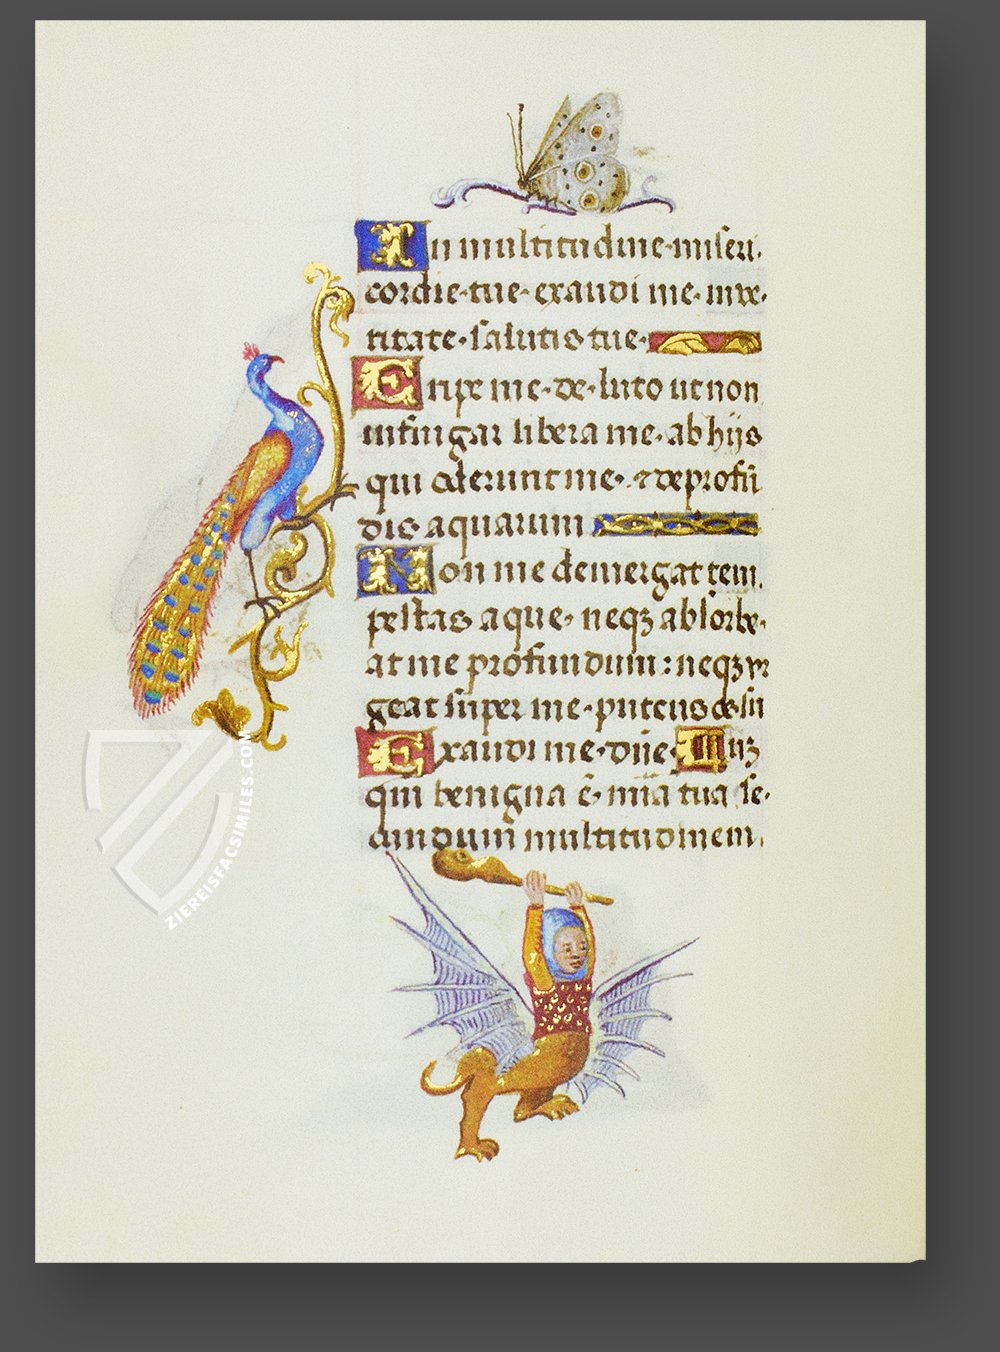 In multitudine·miseri·
cordie·tue·exaudi me·inve·
ritate·salutis tue·
Eripe me·de·luto ut non
infingar libera me·ab hijs
qui oderunt me·⁊ de profū
dis aquarum
Non me demergat tem·
pestas aque·neqꝫ absorbe·
at me profundum:neqꝫ vr
geat super me·puteus os su
Exaudi me·dn̄e· Qm̄
qui benigna ē·mīa tua se·
cundum multitudinem·
ZIEREISFACSIMILES.COM